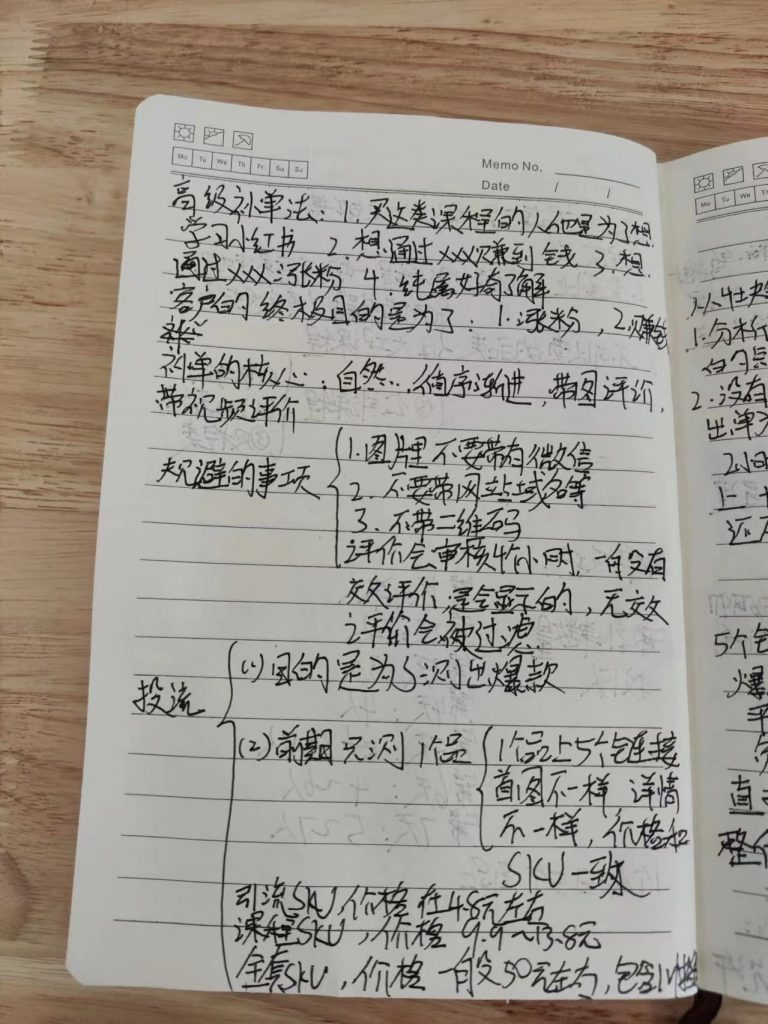 Mo Tu We Th Fr Sa Su
Memo No.
Date / /
高级补单法：1. 买这类课程的人他是为了想
学习小红书 2. 想通过xxx赚到钱 3. 想
通过xxx涨粉 4. 纯属好奇了解
客户的终极目的是为了：1. 涨粉，2. 赚钱
补单的核心：自然，循序渐进，带图评价，
带视频评价
规避的事项
1. 图片里不要带有微信
2. 不要带网站域名等
3. 不带二维码
评价会审核4个小时，一般有
效评价，是会显示的，无效
评价会被过滤
投流
(1) 目的是为了测出爆款
(2) 前期先测1个品
1个品上5个链接
首图不一样 详情
不一样，价格和
SKU一致
引流SKU，价格在4.8元左右
课程SKU，价格9.9~13.8元
全套SKU，价格一般50元左右，包含
Mo Tu We Th
1. 分析
2. 没有
出单
2小时
上一
还
5个
爆
平
直
整个